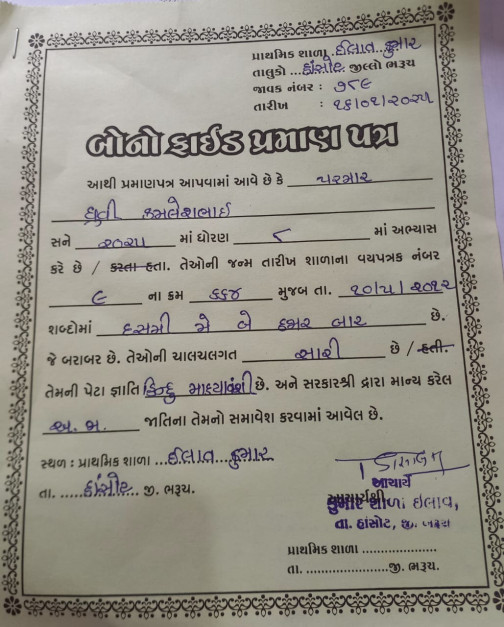 પ્રાથમિક શાળા ઈલાવ કુમાર
તાલુકો ...હાંસોટ. જીલ્લો ભરૂચ
જાવક નંબર : ૭૮૯
તારીખ : ૨૬/૦૨/૨૦૨૫
બોનો ફાઈડ પ્રમાણ પત્ર
આથી પ્રમાણપત્ર આપવામાં આવે છે કે પરમાર
ધ્રુવી કમલેશભાઈ
સને ૨૦૨૫ માં ધોરણ ૮ માં અભ્યાસ
કરે છે / કરતા હતા. તેઓની જન્મ તારીખ શાળાના વયપત્રક નંબર
૯ ના ક્રમ ૬૬૪ મુજબ તા. ૧૦/૫/૨૦૧૨
શબ્દોમાં દસમી મે બે હજાર બાર છે.
જે બરાબર છે. તેઓની ચાલચલગત સારી છે / હતી.
તેમની પેટા જ્ઞાતિ હિન્દુ માહ્યાવંશી છે. અને સરકારશ્રી દ્રારા માન્ય કરેલ
અ. જા. જાતિના તેમનો સમાવેશ કરવામાં આવેલ છે.
સ્થળ : પ્રાથમિક શાળા ...ઈલાવ...કુમાર
તા. .....હાંસોટ.... જી. ભરૂચ.
આચાર્ય
આચાર્યશ્રી
કુમાર શાળા ઇલાવ,
તા. હાંસોટ, જી. ભરૂચ
પ્રાથમિક શાળા ..................
તા. ......................જી. ભરૂચ.